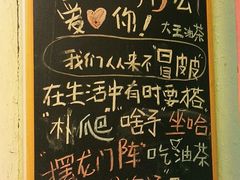 爱你!
大王油茶
我们从来不"冒皮皮"
在生活中有时要搭
"扑爬" 啥子 坐哈
"摆龙门阵" 吃油茶